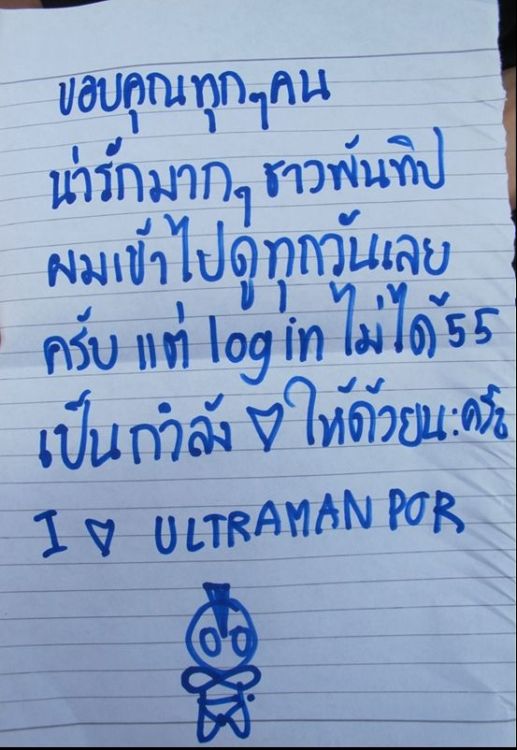 ขอบคุณทุกๆคน
น่ารักมากๆ ชาวพันทิป
ผมเข้าไปดูทุกวันเลย
ครับ แต่ log in ไม่ได้ 55
เป็นกำลัง ♡ ให้ด้วยนะครับ
I ♡ ULTRAMAN POR